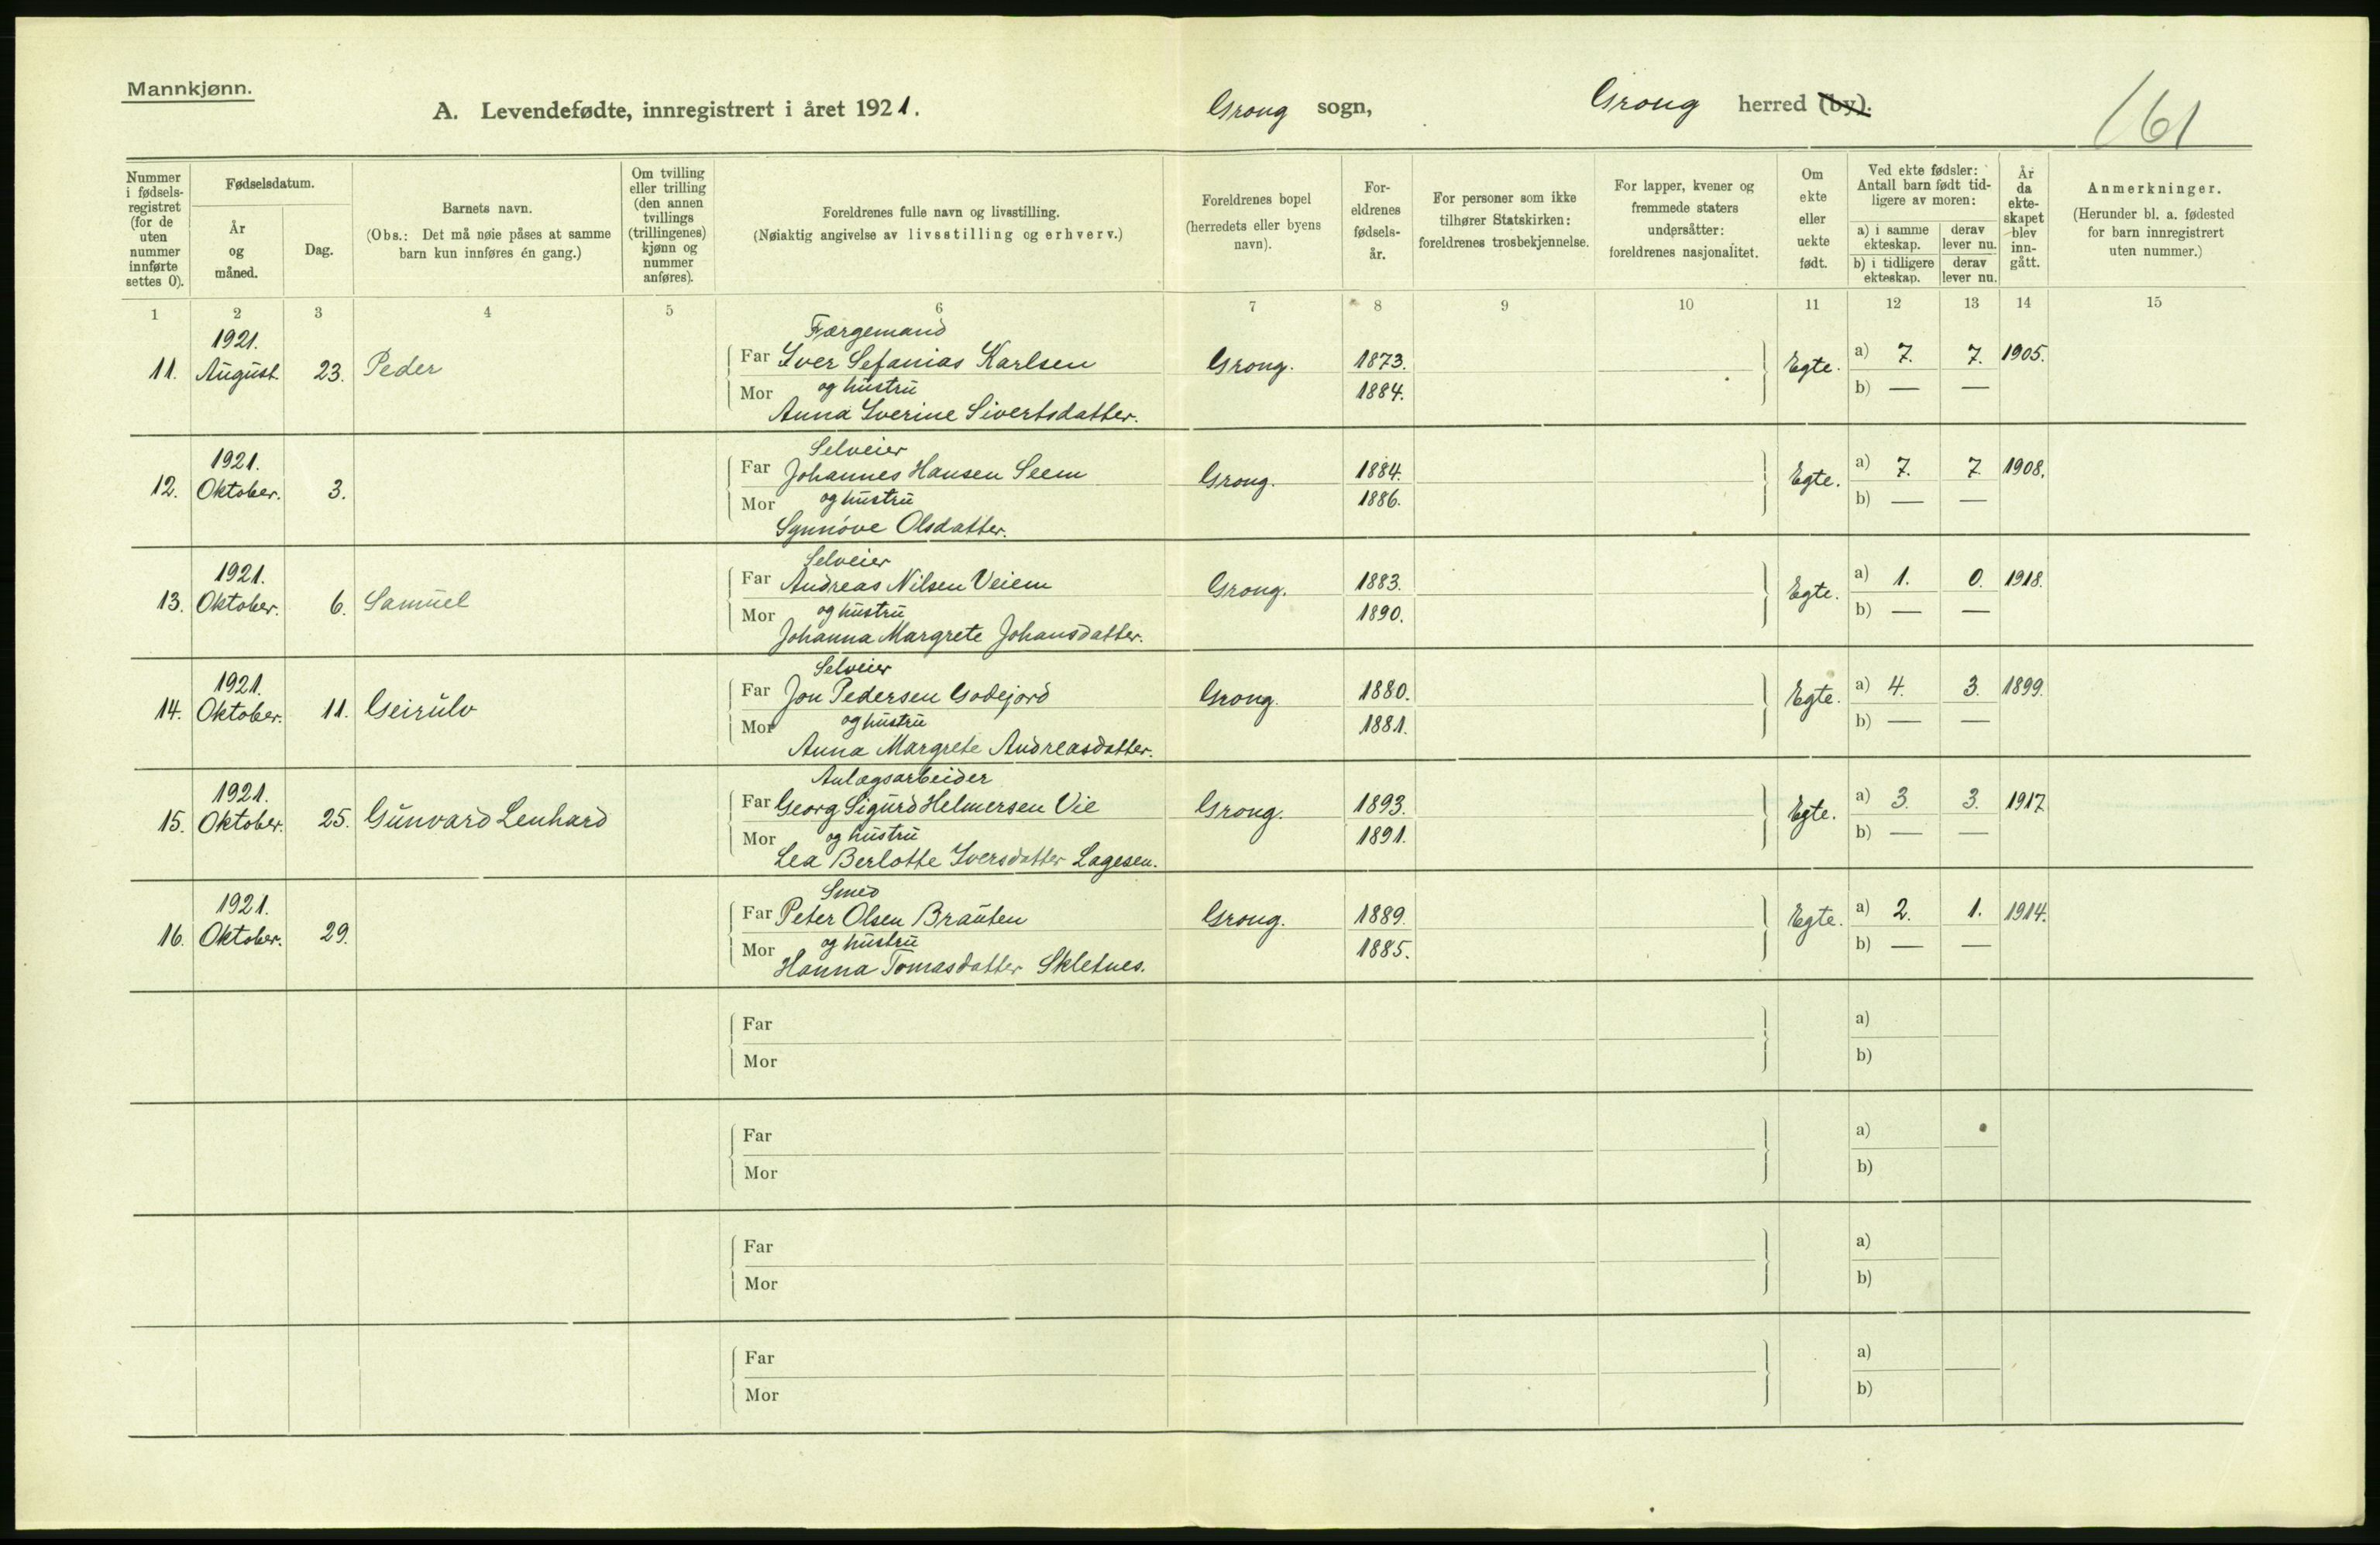 Mannkjønn.
A. Levendefødte, innregistrert i året 1921.
Grong sogn, Grong herred (by).
161
Nummer i fødsels-registret (for de uten nummer innførte settes 0).
Fødselsdatum.
År og måned.
Dag.
Barnets navn.
(Obs.: Det må nøie påses at samme barn kun innføres én gang.)
Om tvilling eller trilling (den annen tvillings (trillingenes) kjønn og nummer anføres).
Foreldrenes fulle navn og livsstilling.
(Nøiaktig angivelse av livsstilling og erhverv.)
Foreldrenes bopel (herredets eller byens navn).
For-eldrenes fødsels-år.
For personer som ikke tilhører Statskirken: foreldrenes trosbekjennelse.
For lapper, kvener og fremmede staters undersåtter: foreldrenes nasjonalitet.
Om ekte eller uekte født.
Ved ekte fødsler: Antall barn født tid-ligere av moren:
a) i samme ekteskap. derav lever nu.
b) i tidligere ekteskap. derav lever nu.
År da ekte-skapet blev inn-gått.
Anmerkninger.
(Herunder bl. a. fødested for barn innregistrert uten nummer.)
1 2 3 4 5 6 7 8 9 10 11 12 13 14 15
1921. Færgemand
11. August. 23. Peder Far Iver Sefanias Karlsen Grong. 1873. Egte. a) 7. 7. 1905.
Mor og hustru 1884. b) — —
Anna Iverine Sivertsdatter.
1921. Selveier
12. Oktober. 3. Far Johannes Hansen Seem Grong. 1884. Egte. a) 7. 7 1908.
Mor og hustru 1886. b) — —
Synnöve Olsdatter.
1921. Selveier
13. Oktober. 6. Samuel Far Andreas Nilsen Veiem Grong. 1883. Egte. a) 1. 0. 1918.
Mor og hustru 1890. b) — —
Johanna Margrete Johansdatter.
1921. Selveier
14. Oktober. 11. Geirulv Far Jon Pedersen Godejord Grong. 1880. Egte. a) 4. 3. 1899.
Mor og hustru 1881. b) — —
Anna Margrete Andreasdatter.
1921. Anlægsarbeider
15. Oktober. 25. Gunvard Lenhard Far Georg Sigurd Helmersen Vie Grong. 1893. Egte. a) 3. 3. 1917
Mor og hustru 1891. b) — —
Lea Berlotte Iversdatter Lagesen.
1921. Smed
16. Oktober. 29. Far Peter Olsen Brauten Grong. 1889. Egte. a) 2. 1. 1914.
Mor og hustru 1885. b) — —
Hanna Tomasdatter Skletnes.
Far a)
Mor b)
Far a)
Mor b)
Far a)
Mor b)
Far a)
Mor b)